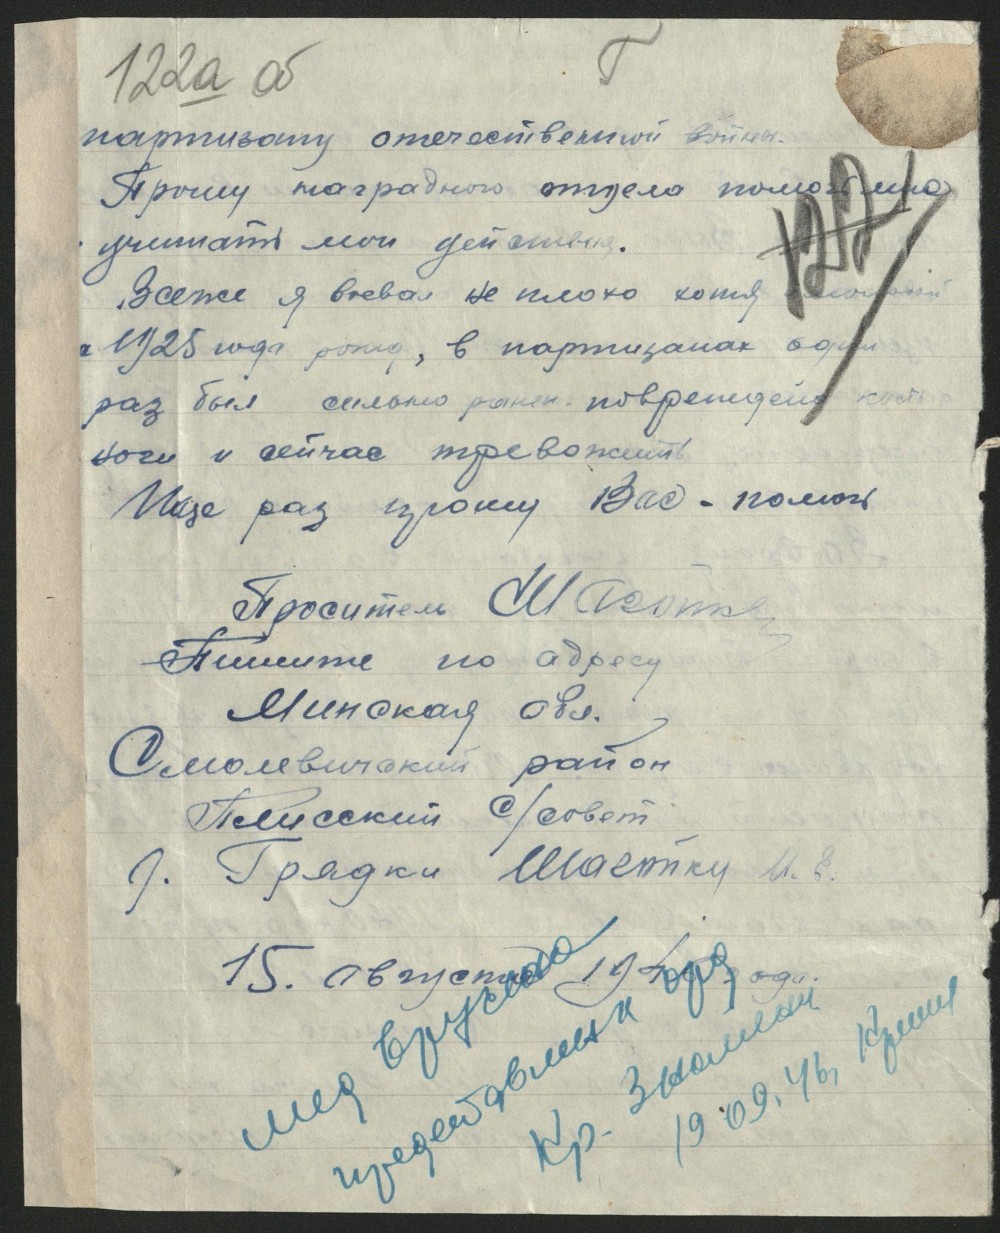 122а об
Г
партизану отечественной войны.
Прошу наградного отдела помоч мне
учитать мои действия.
Всеже я воевал не плохо хотя молодой
1925 года рожд, в партизанах один
раз был сильно ранен. повреждена кость
ноги и сейчас тревожить
Ище раз прошу Вас - помоч
Проситель
Пишите по адресу
Минская обл.
Смолевичский район
Плисский с/совет
д. Грядки Шаетку И. Е.
15. августа 194 года.
мед вручена
представлен к орд
Кр. Знамени
19.09.46,